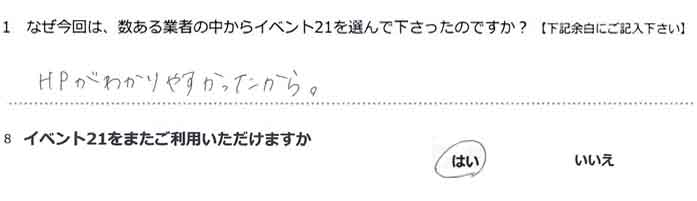 1 なぜ今回は、数ある業者の中からイベント21を選んで下さったのですか？【下記余白にご記入下さい】
HPがわかりやすかったから。
8 イベント21をまたご利用いただけますか
はい いいえ